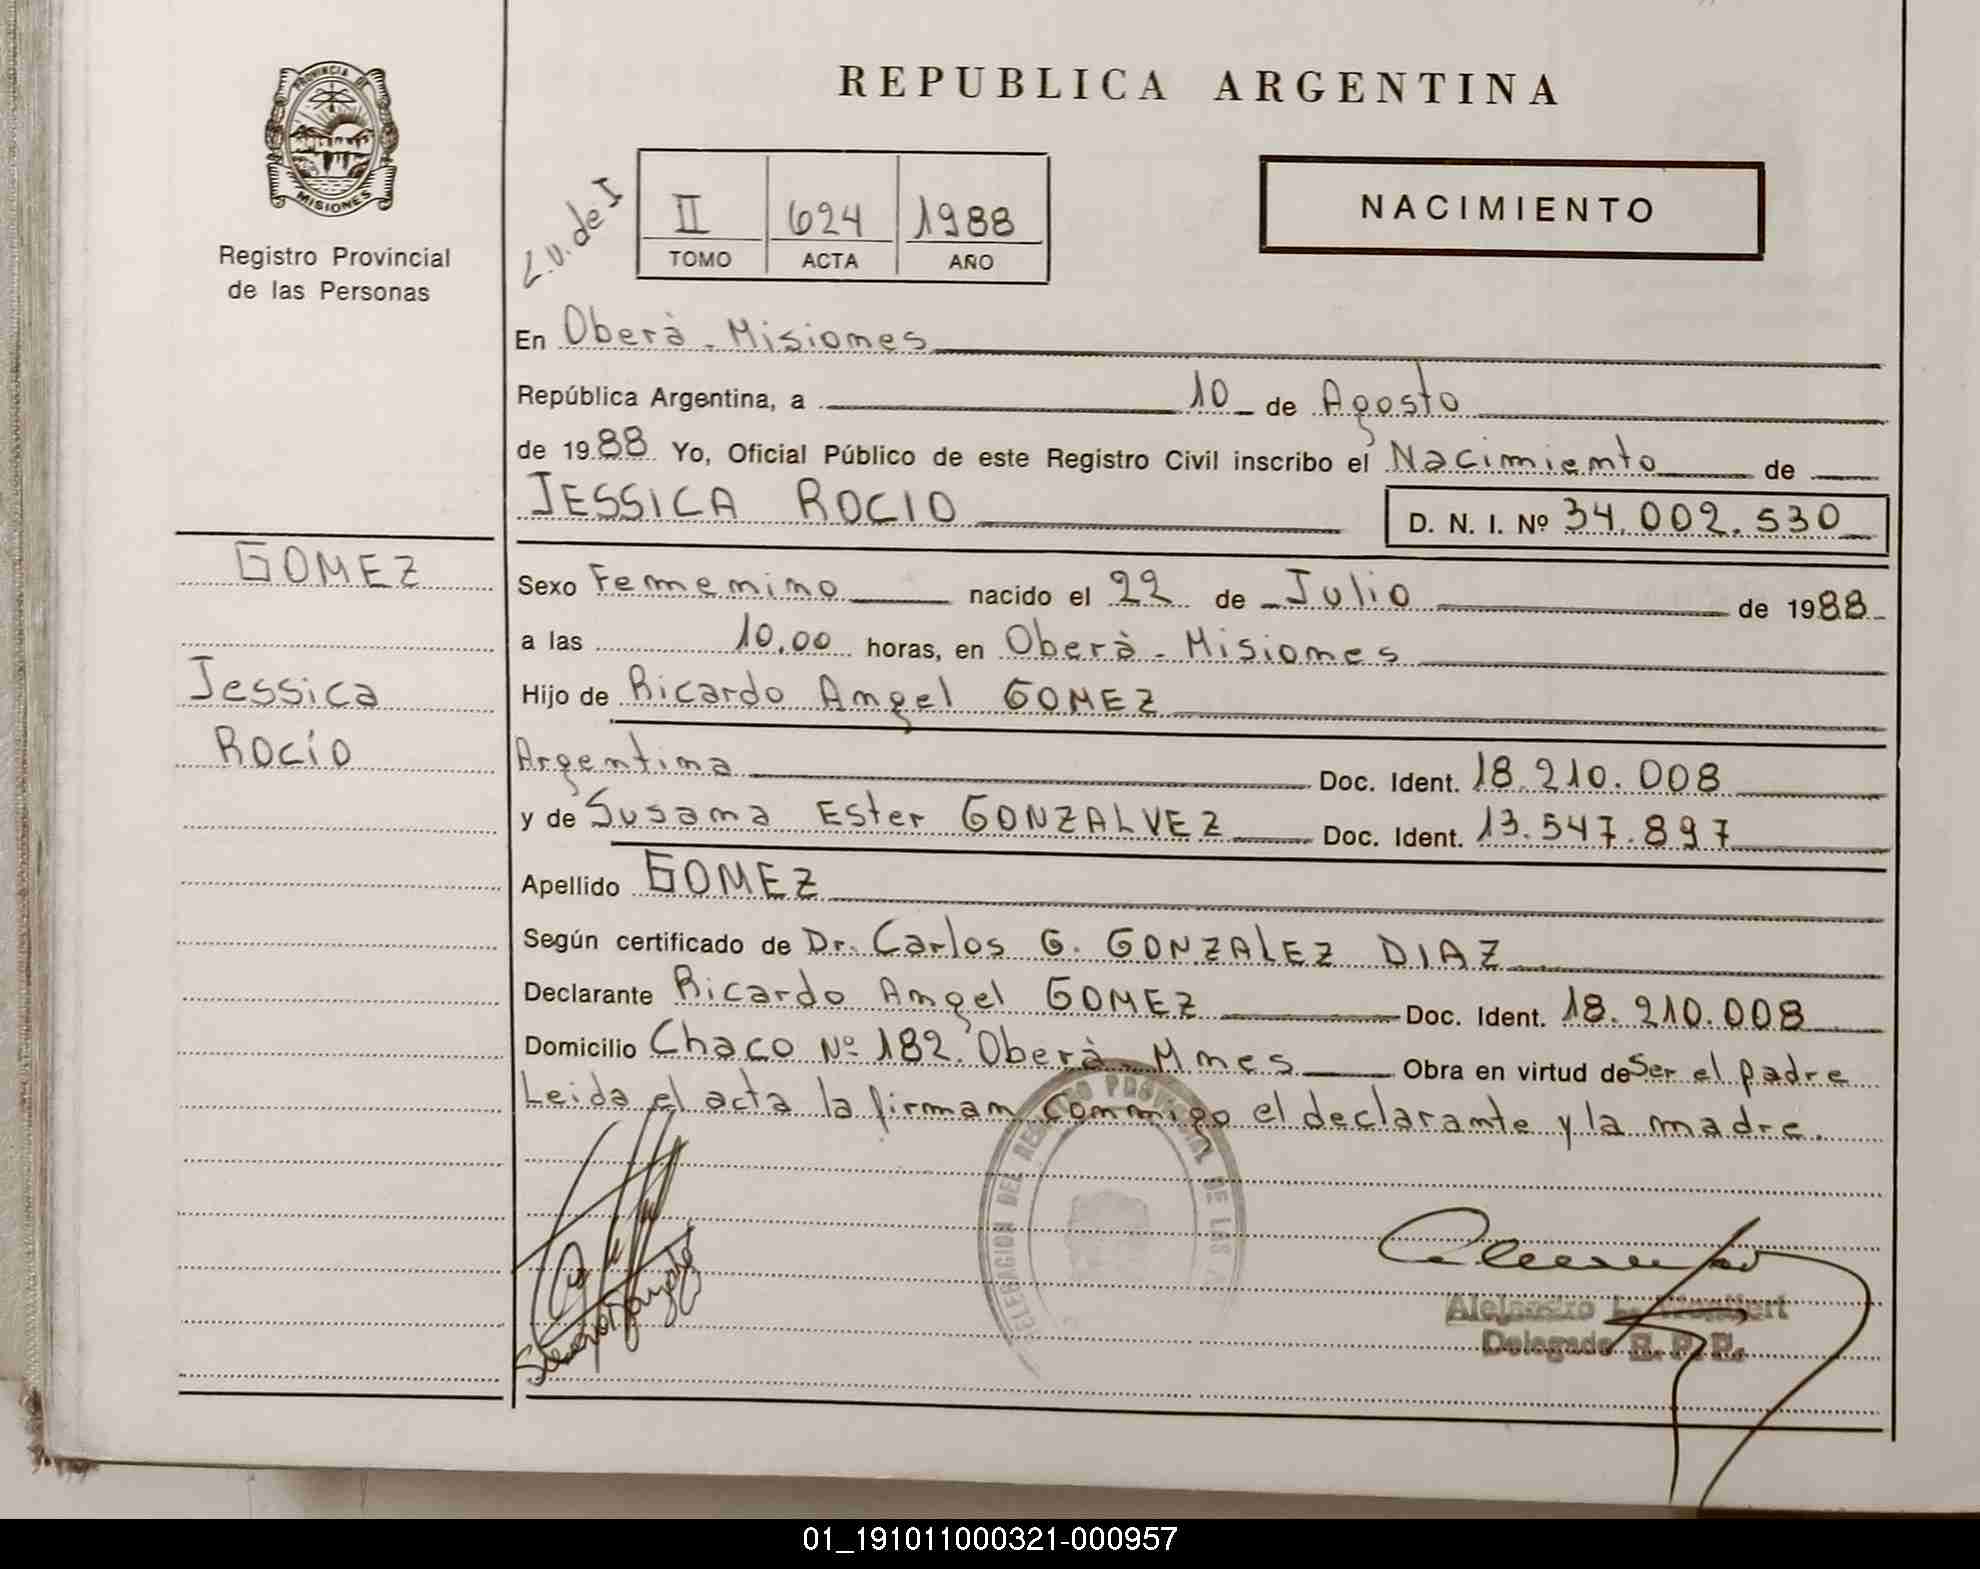 REPUBLICA ARGENTINA
PROVINCIA DE
MISIONES
Registro Provincial
de las Personas
L.U. de I
II 624 1988
TOMO ACTA AÑO
NACIMIENTO
En Oberà - Misiones
República Argentina, a 10 de Agosto
de 1988 Yo, Oficial Público de este Registro Civil inscribo el Nacimiento de
JESSICA ROCIO D. N. I. Nº 34.002.530
GOMEZ
Jessica
Rocío
Sexo Femenino nacido el 22 de Julio de 1988
a las 10,00 horas, en Oberà - Misiones
Hijo de Ricardo Angel GOMEZ
Argentina Doc. Ident. 18.210.008
y de Susana Ester GONZALVEZ Doc. Ident. 13.547.897
Apellido GOMEZ
Según certificado de Dr. Carlos G. GONZALEZ DIAZ
Declarante Ricardo Angel GOMEZ Doc. Ident. 18.210.008
Domicilio Chaco Nº 182. Oberà - Mnes Obra en virtud de Ser el padre
Leida el acta la firman conmigo el declarante y la madre.
DELEGACION DEL REGISTRO PROVINCIAL DE LAS
Alejandro L.
Delegado R. P. P.
01_191011000321-000957